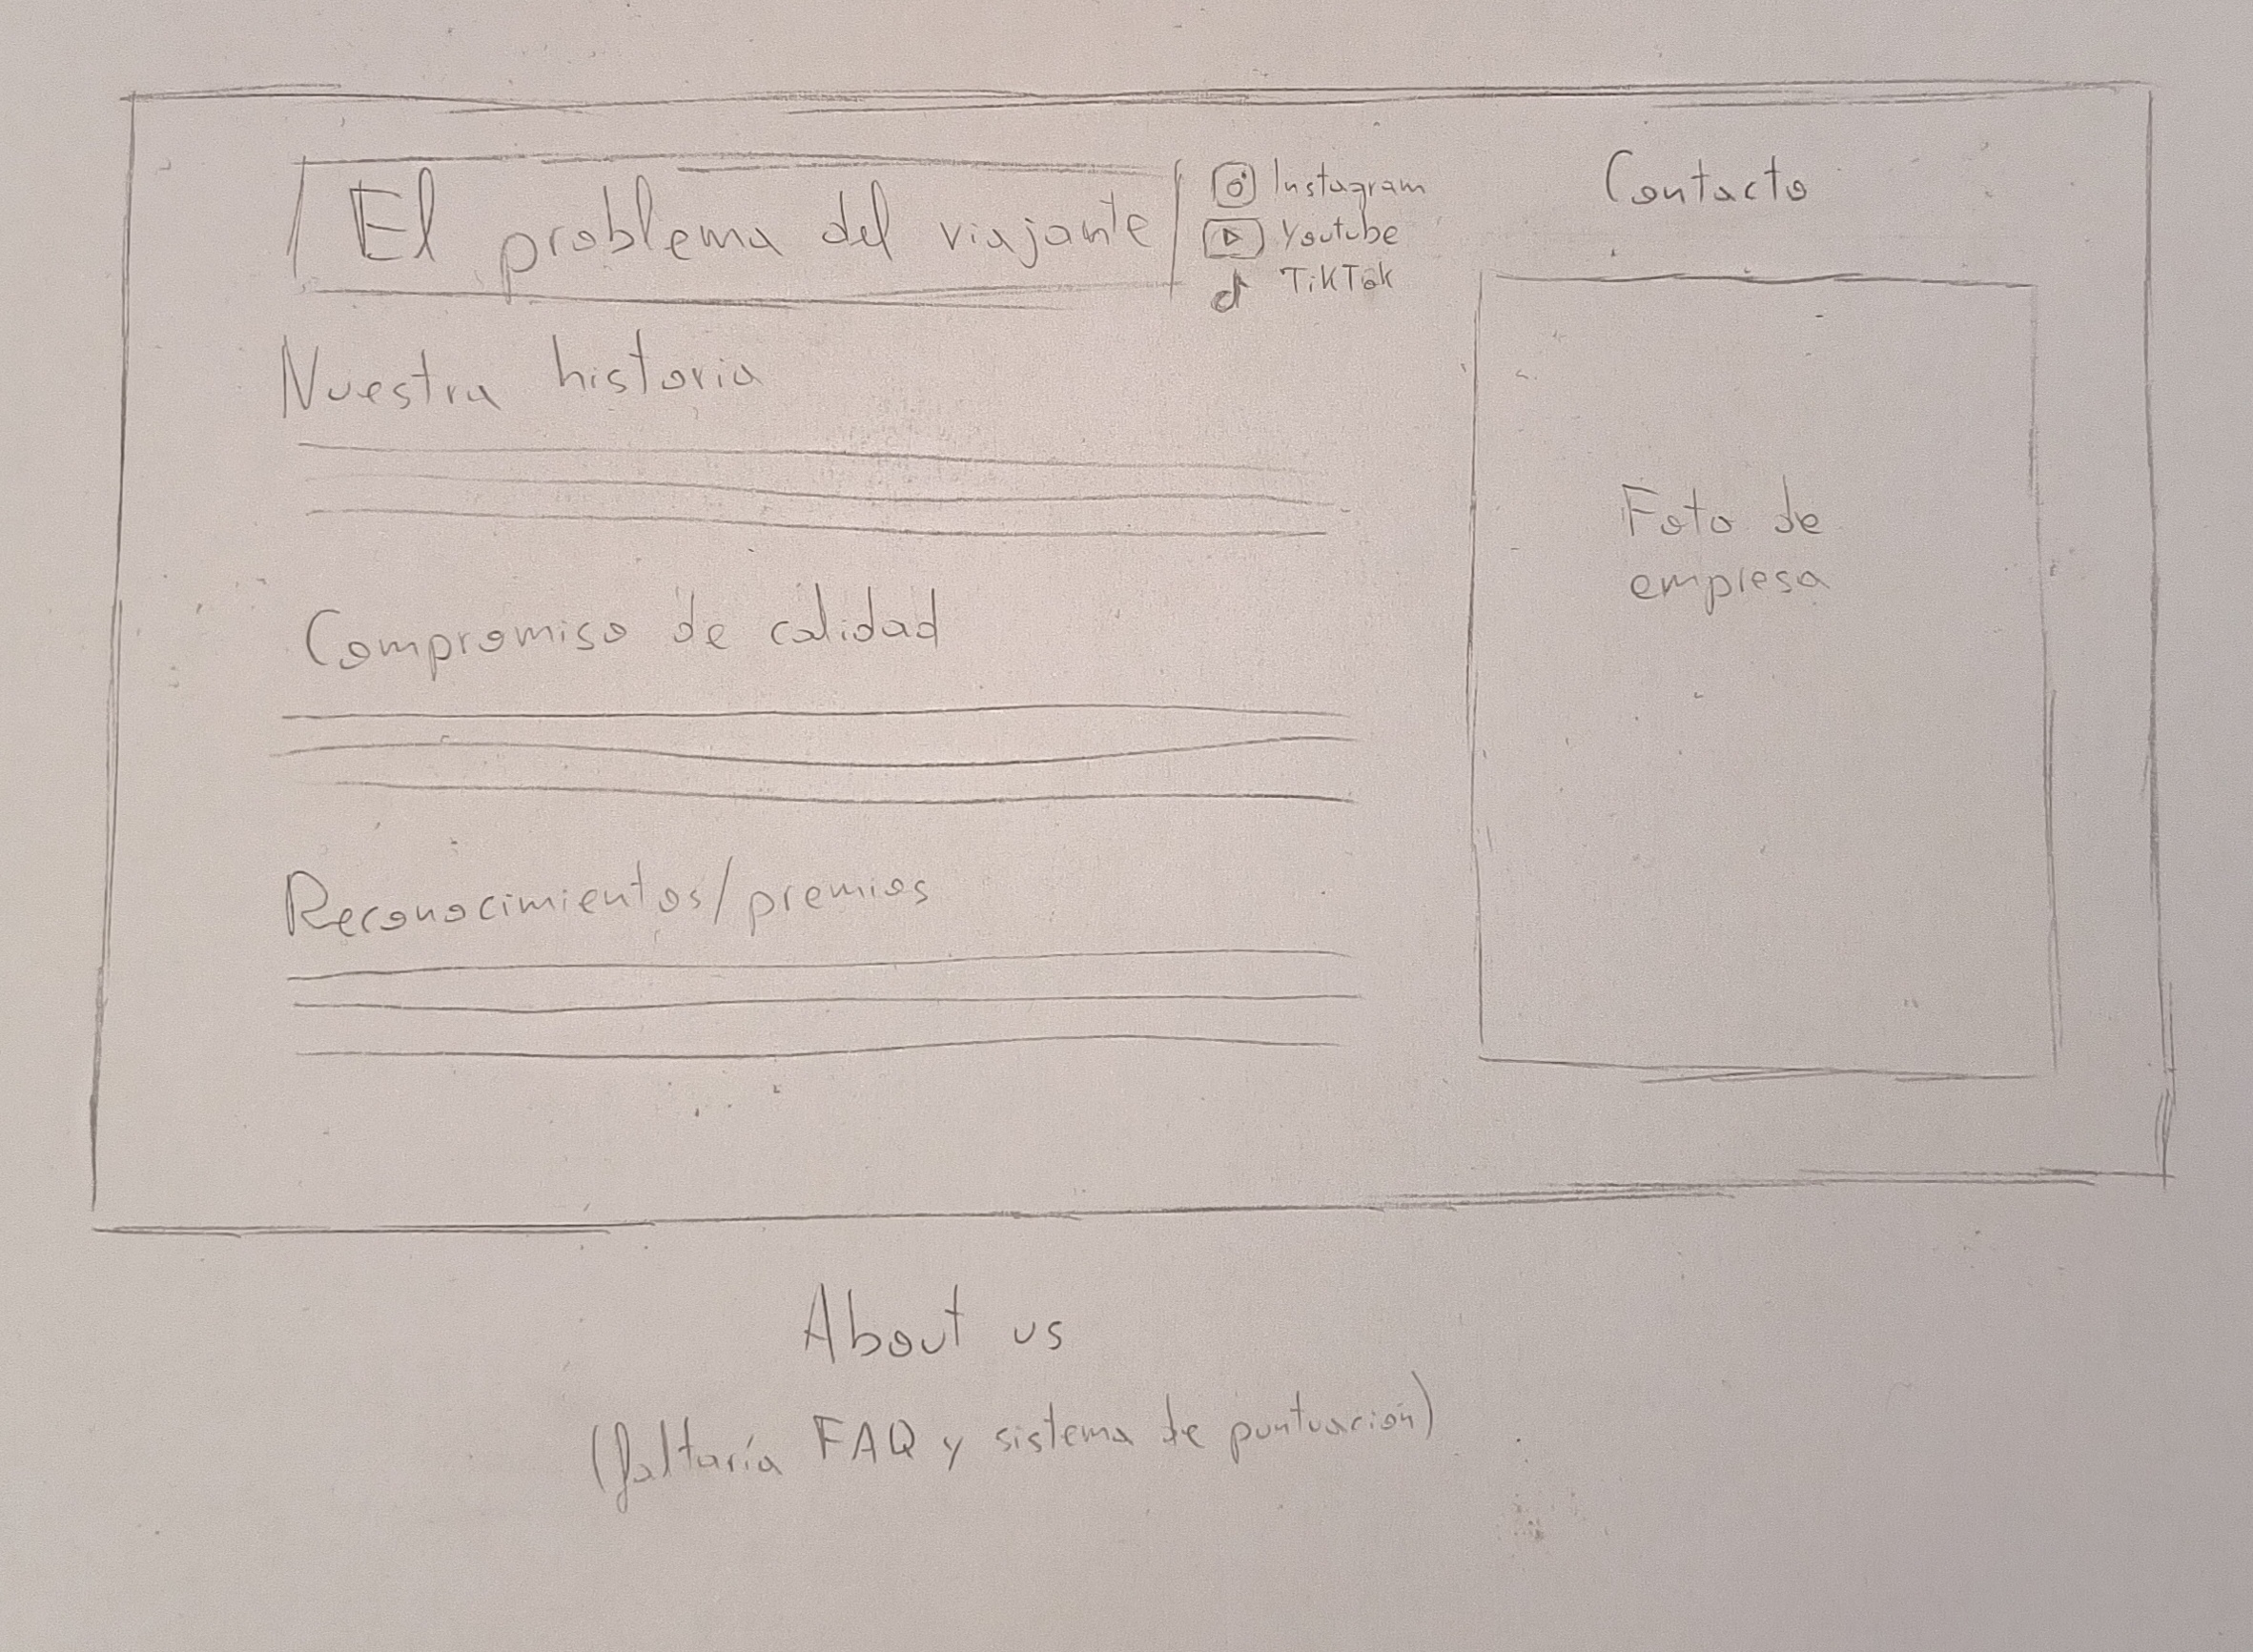 El problema del viajante
Instagram
Youtube
TikTok
Contacto
Nuestra historia
Foto de
empresa
Compromiso de calidad
Reconocimientos/premios
About us
(faltaría FAQ y sistema de puntuación)